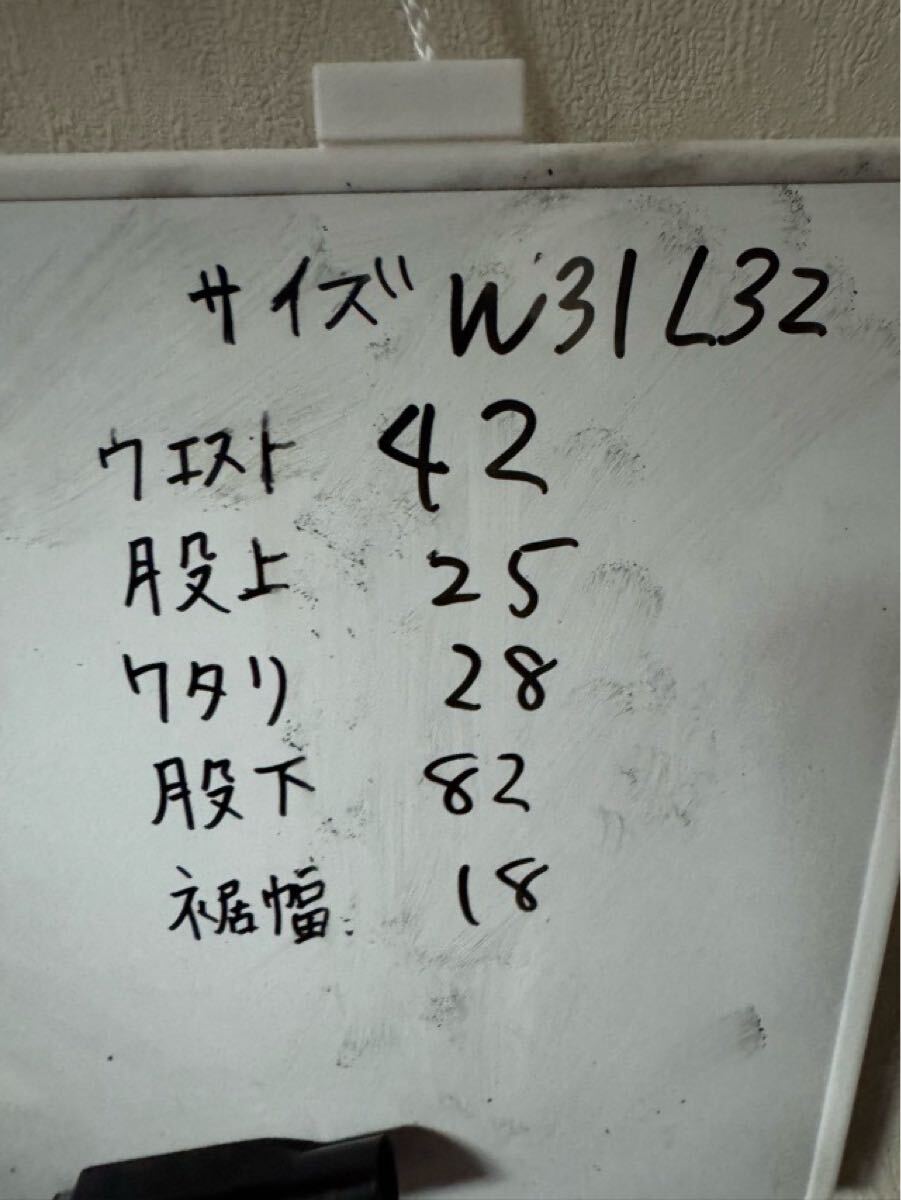 サイズ W31 L32
ウエスト 42
股上 25
ワタリ 28
股下 82
裾幅 18